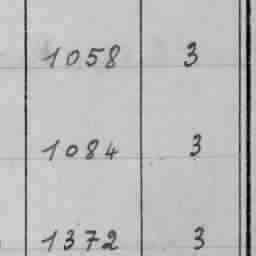 1058 3
1084 3
1372 3